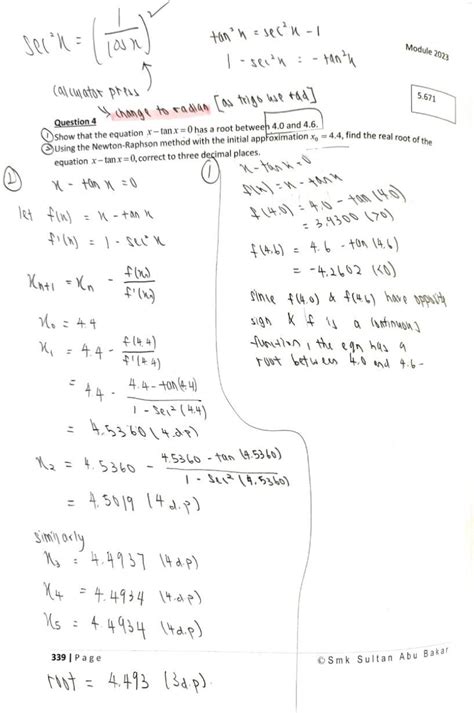 sec²x = (1/cos x)²
tan²x = sec²x - 1
1 - sec²x = - tan²x
Module 2023
calculator press
5.671
change to radian [as trigo use rad]
Question 4
① Show that the equation x − tan x = 0 has a root between 4.0 and 4.6.
② Using the Newton-Raphson method with the initial approximation x₀ = 4.4, find the real root of the
equation x − tan x = 0, correct to three decimal places.
①
x - tan x = 0
f(x) = x - tan x
f(4.0) = 4.0 - tan (4.0)
= 3.9300 (>0)
f(4.6) = 4.6 - tan (4.6)
= -4.2602 (<0)
since f(4.0) & f(4.6) have opposite
sign & f is a continuous
function, the eqn has a
root between 4.0 and 4.6-
②
x - tan x = 0
let f(x) = x - tan x
f'(x) = 1 - sec²x
xn+1 = xn - f(x₂)/f'(x₂)
x₀ = 4.4
x₁ = 4.4 - f(4.4)/f'(4.4)
= 4.4 - (4.4 - tan(4.4))/(1 - sec²(4.4))
= 4.5360 (4 d.p)
x₂ = 4.5360 - (4.5360 - tan (4.5360))/(1 - sec²(4.5360))
= 4.5019 (4 d.p)
similarly
x₃ = 4.4937 (4d.p)
x₄ = 4.4934 (4.d.p)
x₅ = 4.4934 (4d.p)
339 | Page
© Smk Sultan Abu Bakar
root = 4.493 (3d.p).